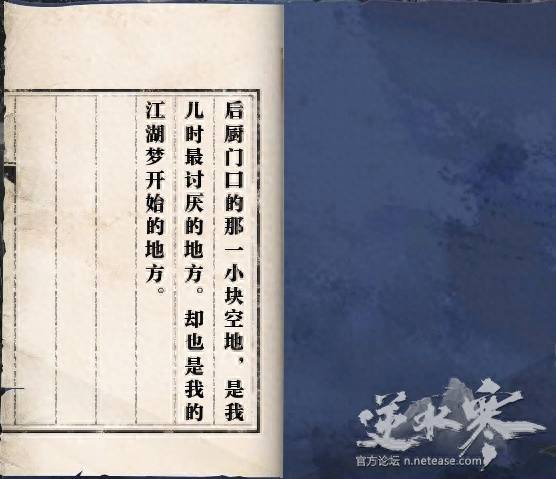 后厨门口的那一小块空地，是我
儿时最讨厌的地方。却也是我的
江湖梦开始的地方。
逆水寒
官方论坛 n.netease.com